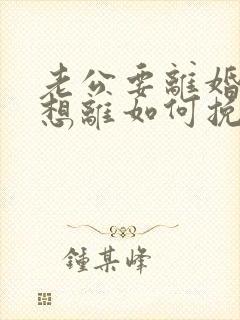 老公要離婚
想離如何挽
鍾某峰